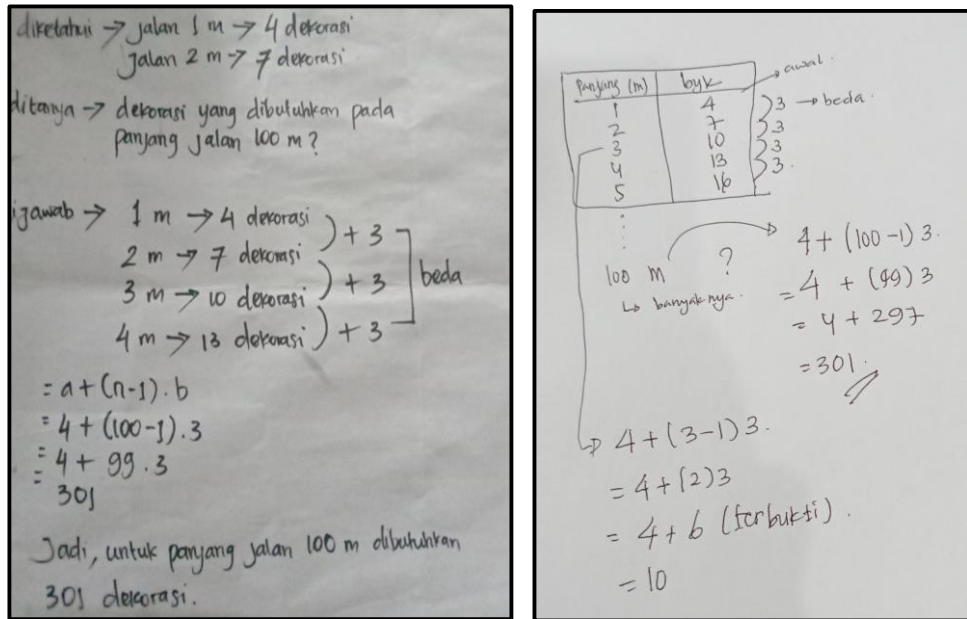 diketahui → jalan 1 m → 4 dekorasi
jalan 2 m → 7 dekorasi
ditanya → dekorasi yang dibutuhkan pada
panjang jalan 100 m?
ijawab → 1 m → 4 dekorasi
) + 3
2 m → 7 dekorasi
) + 3
3 m → 10 dekorasi
) + 3
4 m → 13 dekorasi
beda
= a + (n-1) . b
= 4 + (100-1) . 3
= 4 + 99 . 3
= 301
Jadi, untuk panjang jalan 100 m dibutuhkan
301 dekorasi.
Panjang (m) byk → awal.
1 4
2 7
3 10
4 13
5 16
3 → beda.
3
3
3.
100 m ?
↳ banyaknya.
4 + (100-1) 3.
= 4 + (99) 3
= 4 + 297
= 301.
4 + (3-1) 3.
= 4 + (2) 3
= 4 + 6 (terbukti).
= 10